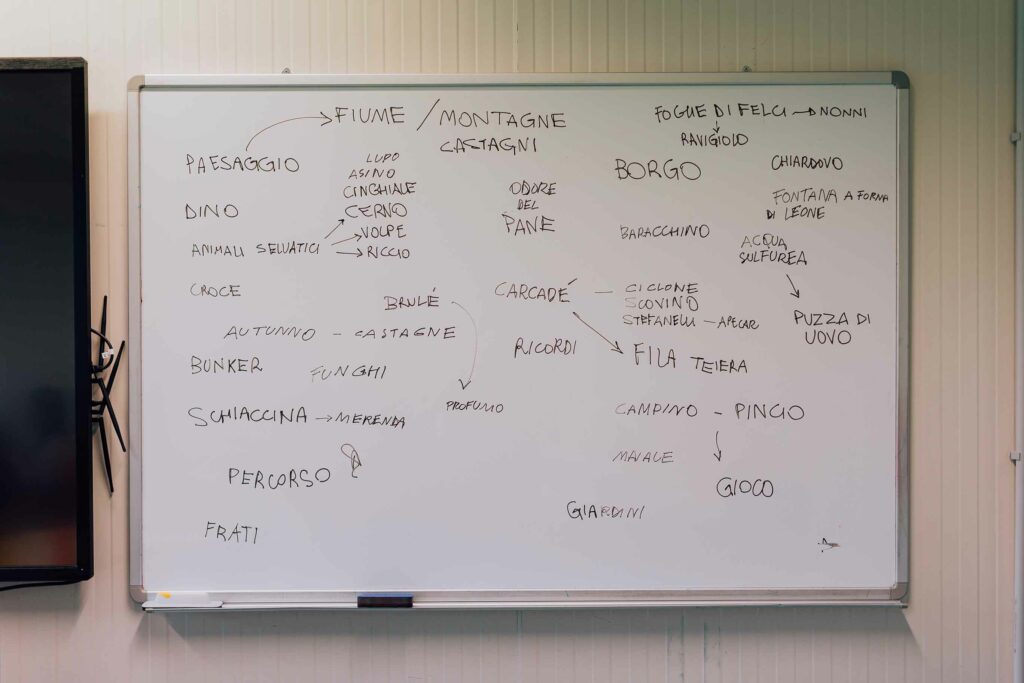 FIUME / MONTAGNE
CASTAGNI
FOGLIE DI FELCI → NONNI
RAVIGIOLO
PAESAGGIO
LUPO
ASINO
CINGHIALE
CERVO
VOLPE
RICCIO
BORGO
CHIARDOVO
ODORE
DEL
PANE
FONTANA A FORMA
DI LEONE
DINO
ANIMALI SELVATICI
BARACCHINO
ACQUA
SULFUREA
CROCE
BRULÉ
CARCADÉ — CICLONE
SCOVINO
STEFANELLI — APECAR
PUZZA DI
UOVO
AUTUNNO - CASTAGNE
RICORDI
FILA TEIERA
BUNKER
FUNGHI
PROFUMO
SCHIACCINA → MERENDA
CAMPINO - PINCIO
MAIALE
PERCORSO
GIOCO
GIARDINI
FRATI